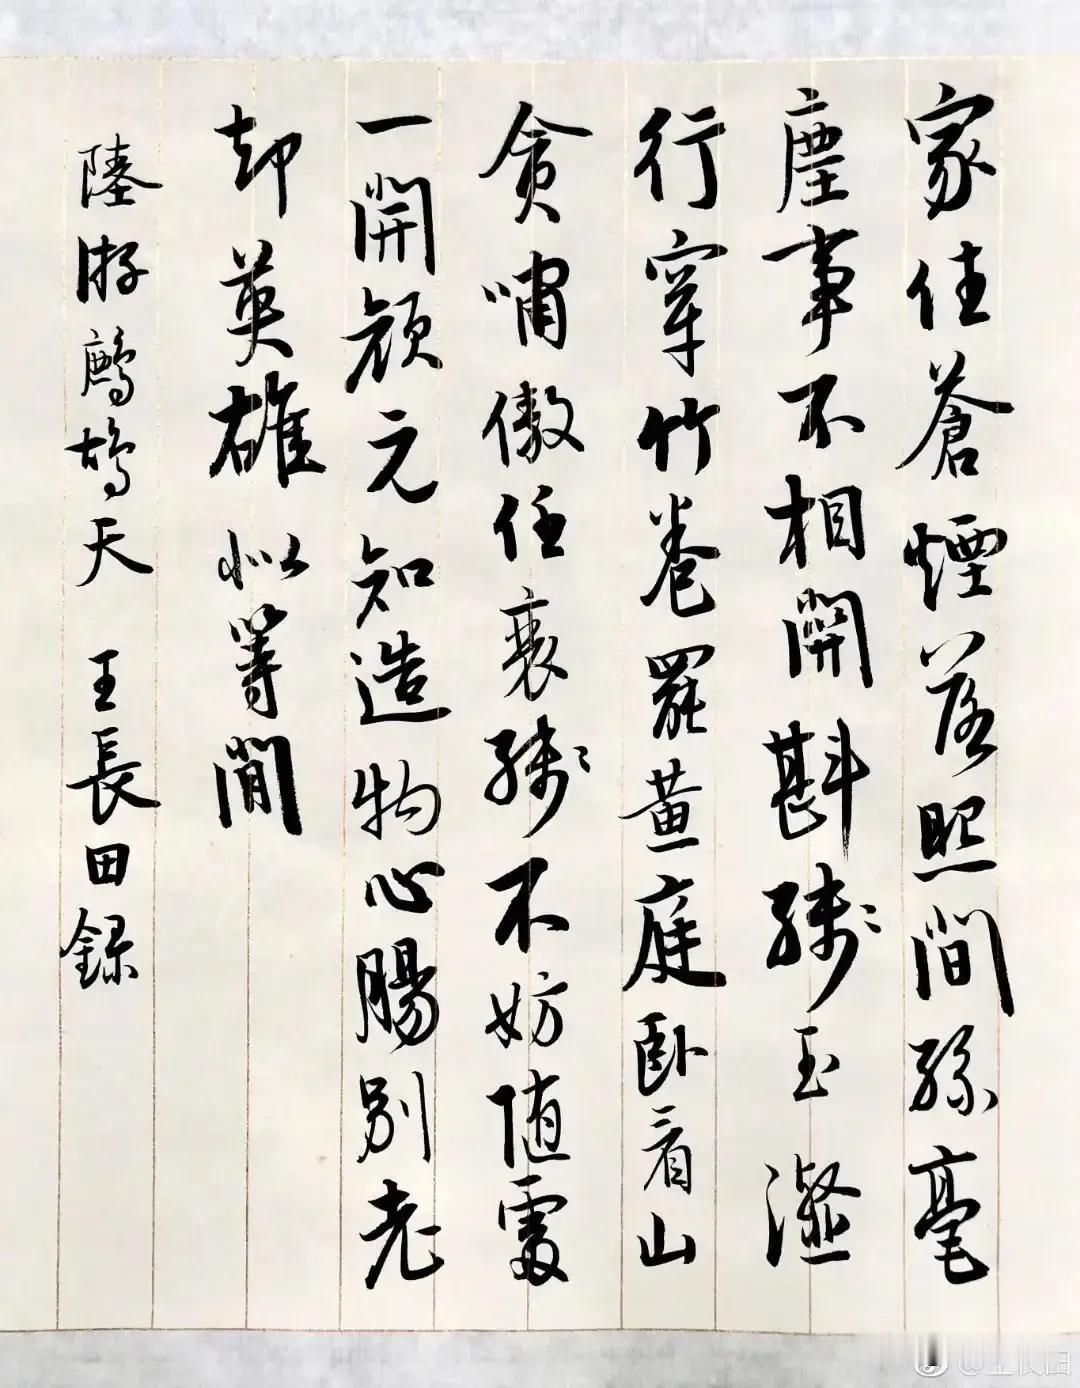 家住蒼煙落照間絲毫
塵事不相關斟殘玉瀣
行穿竹卷罷黃庭臥看山
貪嘯傲任衰殘不妨隨處
一開顏元知造物心腸別老
却英雄似等閒
陸游鷓鴣天 王長田錄
@王長田